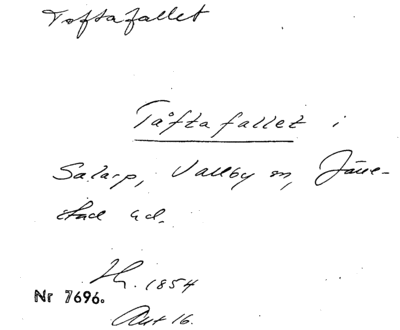 Toftafallet
Tåftafallet i
Salarp, Vallby sn, Järre-
stad hd.
Hf. 1854
Nr 7696.
Akt 16.